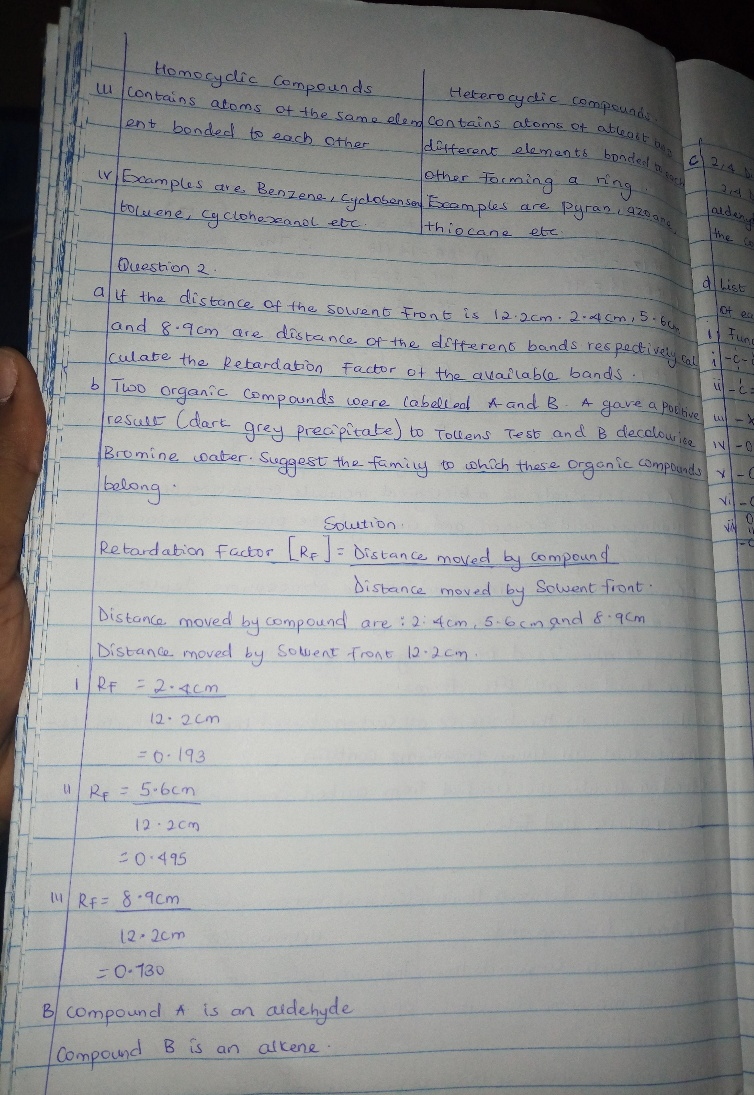 Homocyclic Compounds
Heterocyclic compounds.
iii Contains atoms of the same elem
ent bonded to each other
Contains atoms of atleast
different elements bonded
other forming a ring.
iv Examples are Benzene, Cyclo
toluene, cyclohexanol etc.
Examples are pyran, azocane,
thiocane etc.
Question 2.
a If the distance of the solvent front is 12.2cm. 2.4cm, 5.6cm
and 8.9cm are distance of the different bands respectively cal
culate the Retardation Factor of the available bands.
b Two organic compounds were labelled A and B. A gave a positive
result (dark grey precipitate) to Tollens Test and B decolourise
Bromine water. Suggest the family to which these organic compounds
belong.
Solution.
Retardation Factor [RF] = Distance moved by compound
Distance moved by Solvent front.
Distance moved by compound are : 2.4cm, 5.6cm and 8.9cm
Distance moved by Solvent front 12.2cm.
i RF = 2.4cm
12.2cm
= 0.193
ii RF = 5.6cm
12.2cm
= 0.495
iii RF = 8.9cm
12.2cm
= 0.730
B Compound A is an aldehyde
Compound B is an alkene.
c 2,4
2,4
the
d List
of
i
ii
iii
iv
v
vi
vii